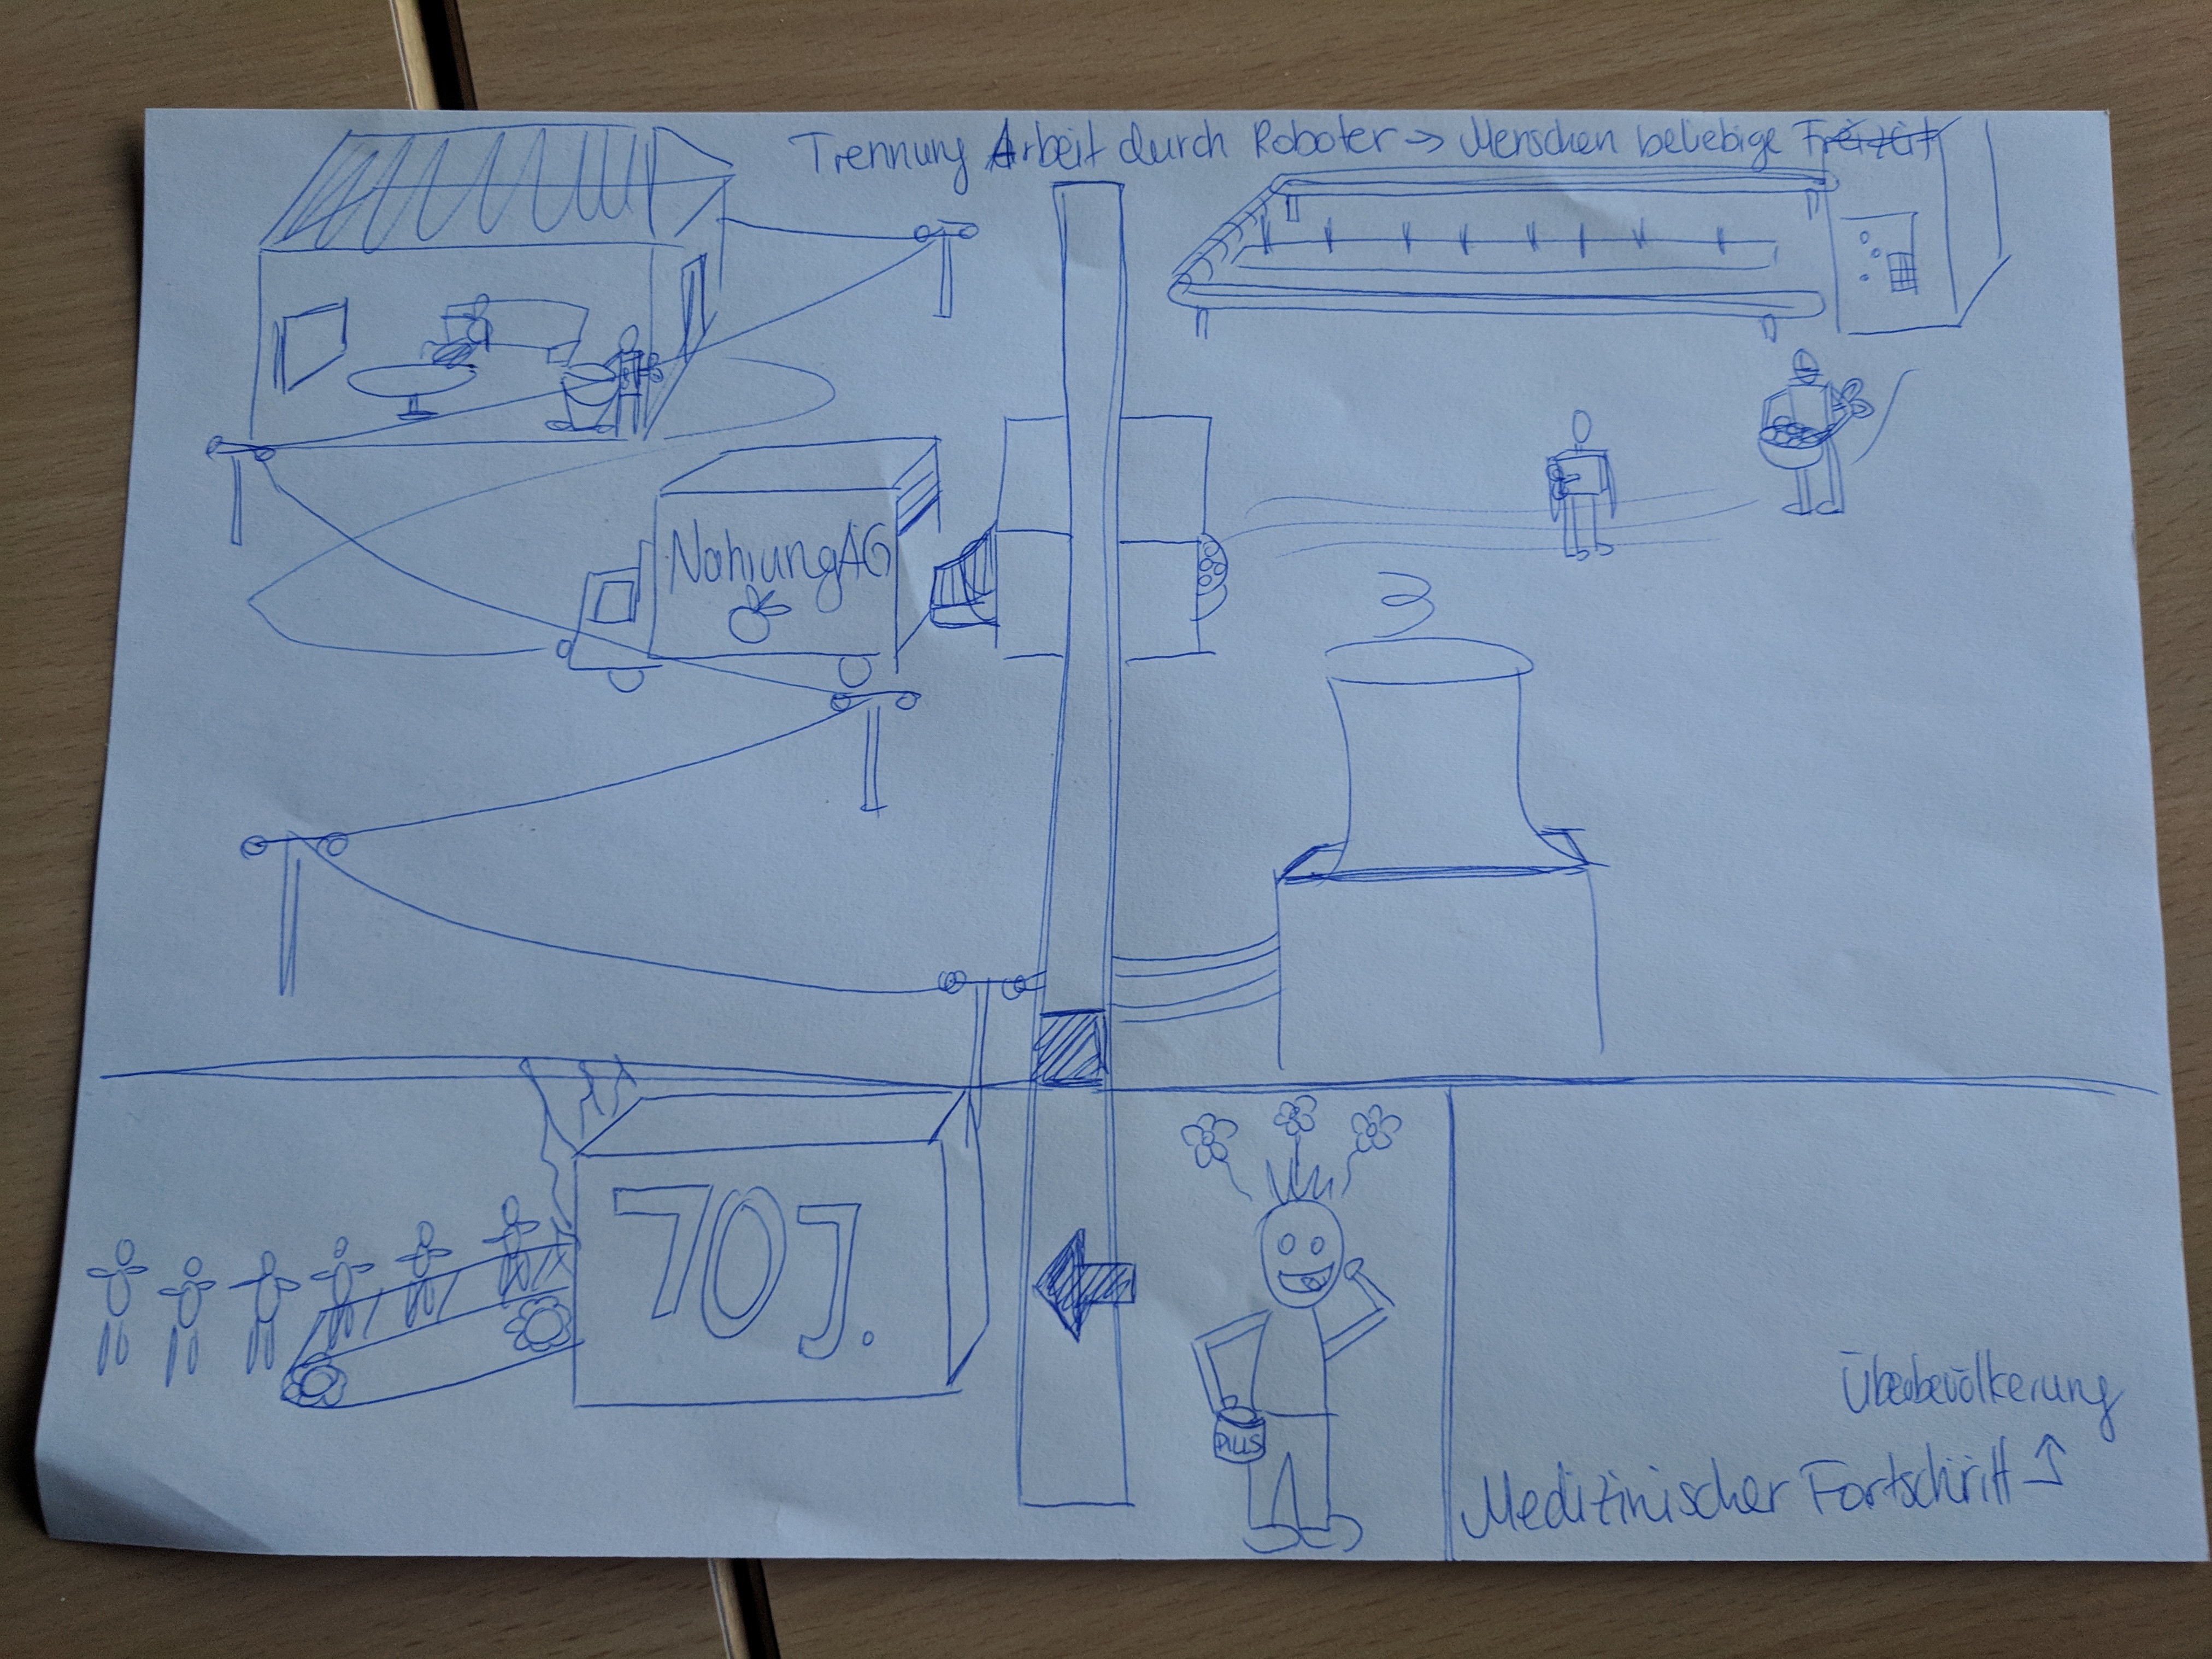 Trennung Arbeit durch Roboter → Menschen beliebige Freizeit
Nahrung AG
70 J.
PILLS
Überbevölkerung
Medizinischer Fortschritt